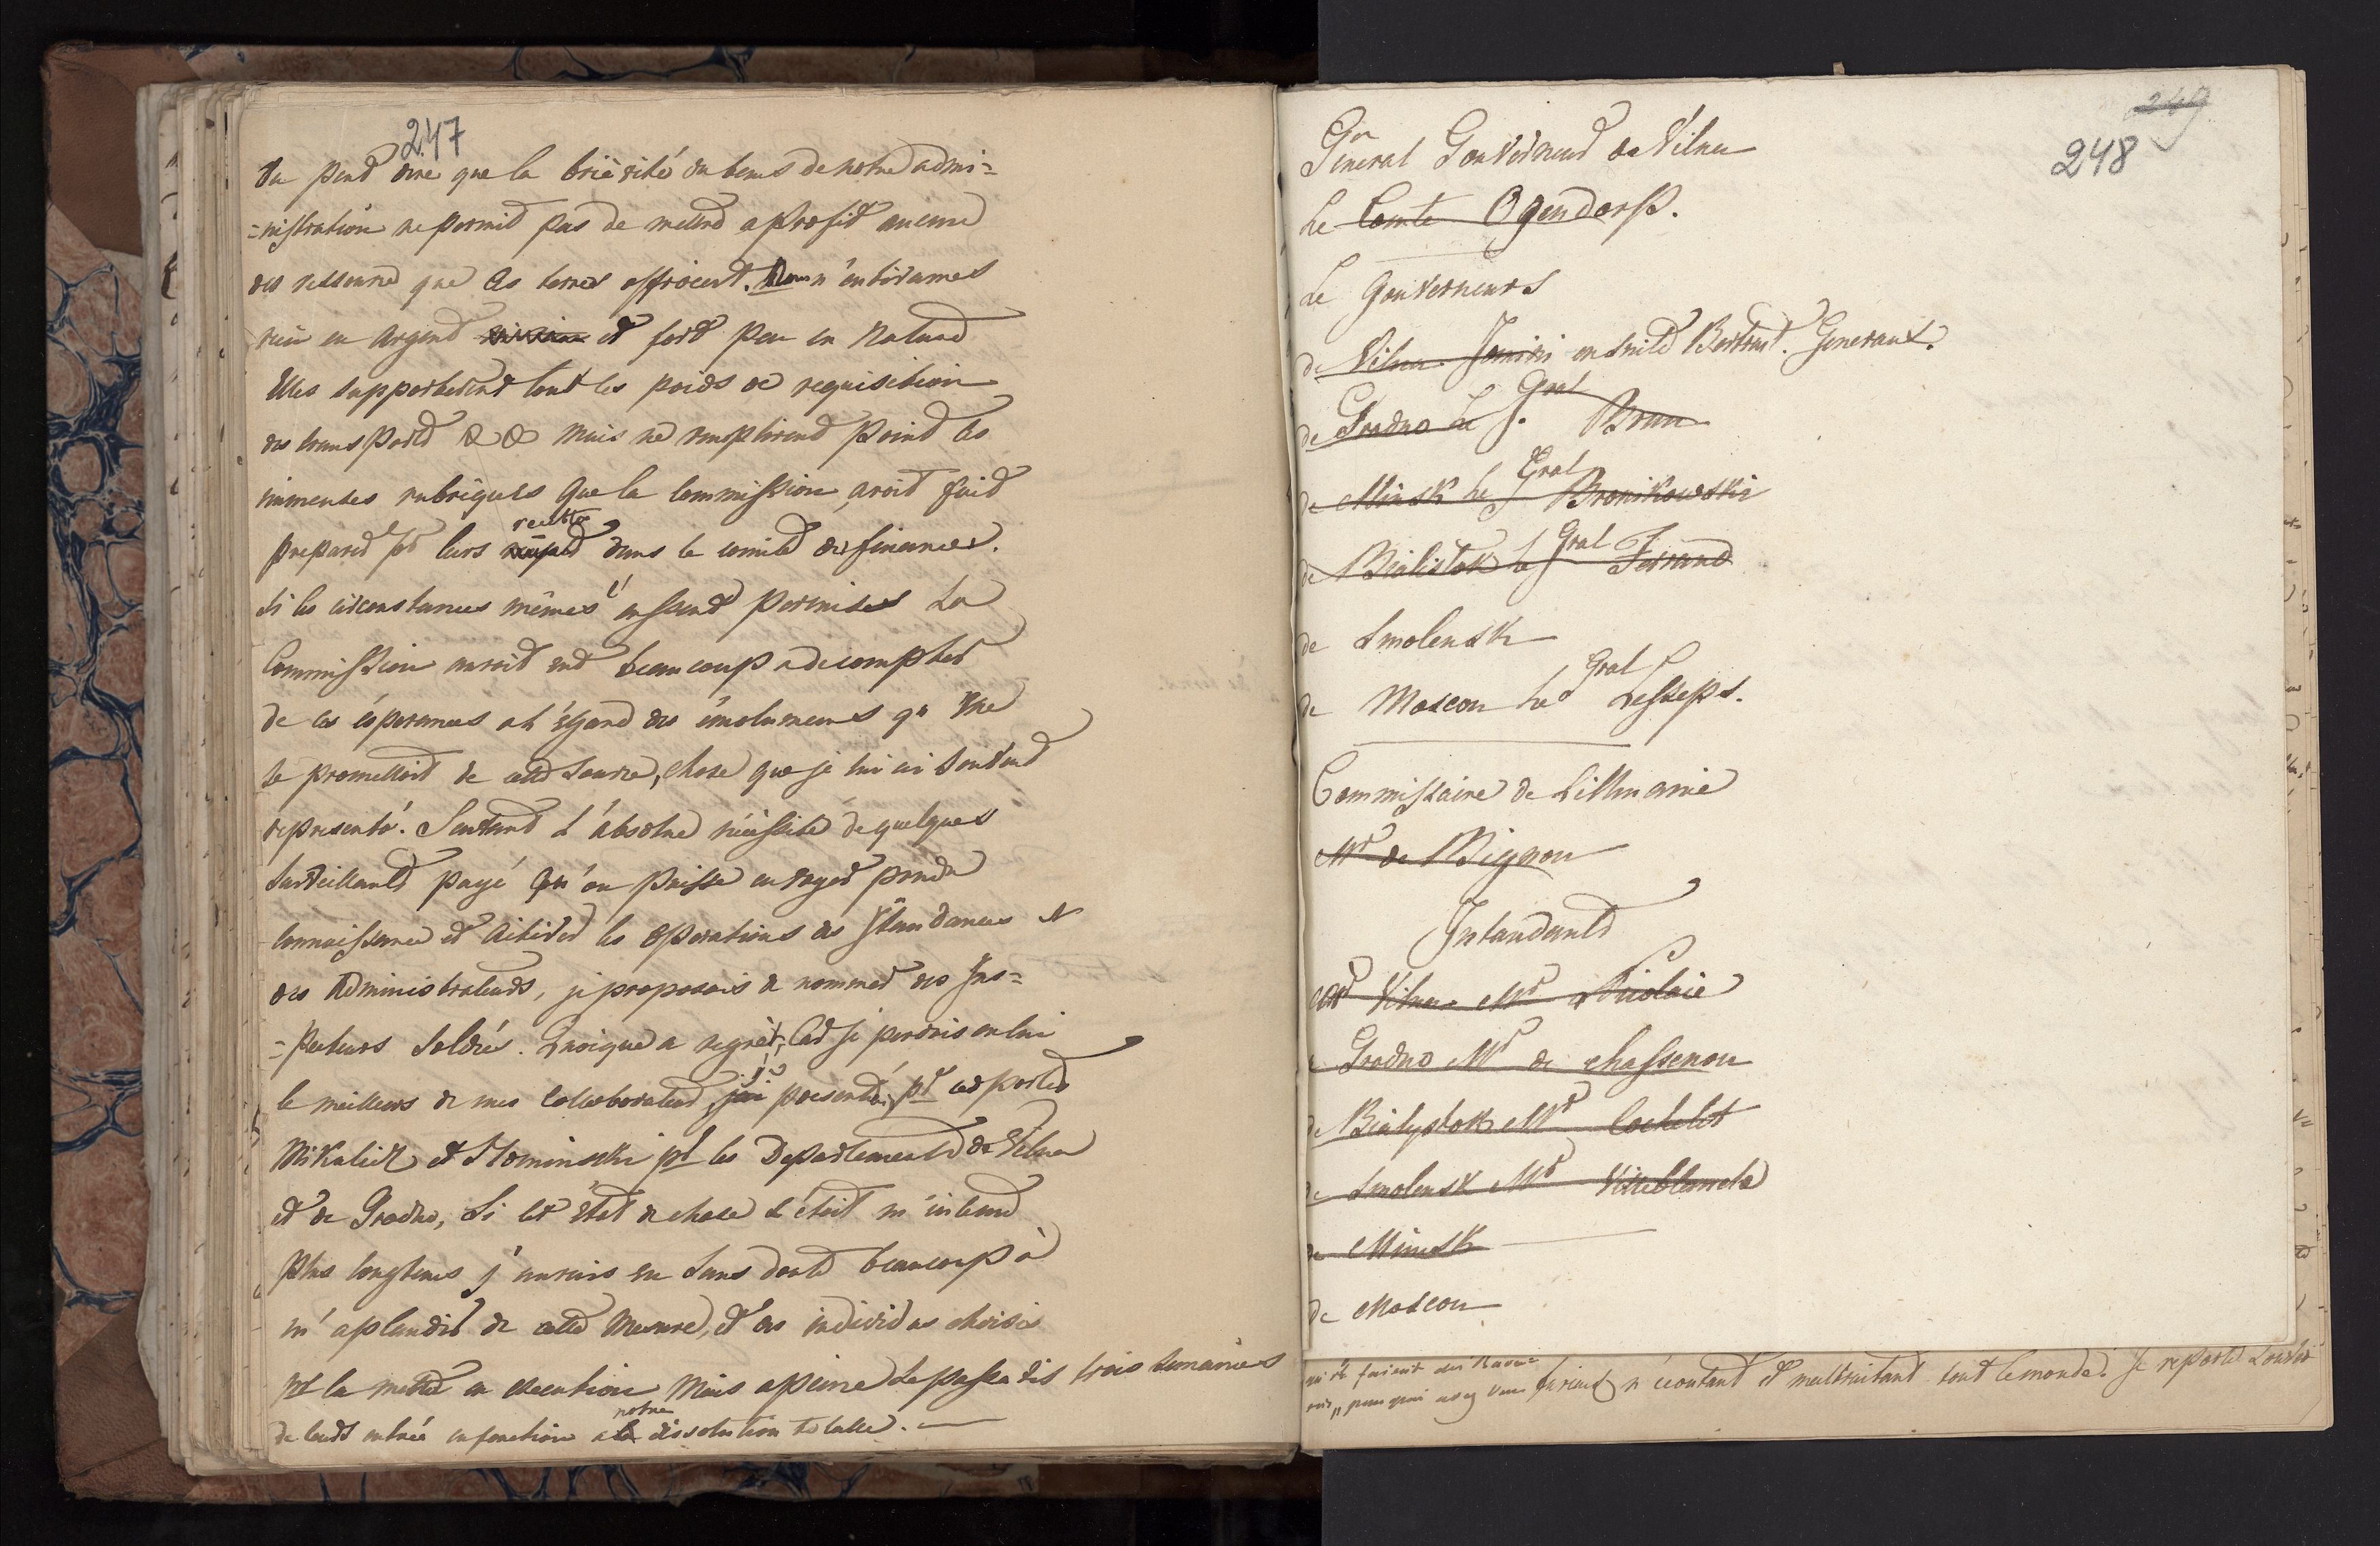 247
On peut dire que la brièvité du tems de notre admi=
=nistration ne permit pas de mettre a profit aucune
des ressource que ces terres offroient. Nous n'entirames
rien en argent et fort peu en Nature
Elles supporterent tout les poids de requisition
des transports & & mais ne remplirent point les
immenses rubriques que la Commission avoit fait
preparer pr leurs recette dans le comité des finances.
Si les circonstances mêmes eussent permises La
Commission auroit eut beaucoup a decompter
de ces ésperances a l'égard des émolumens qu'Elle
se promettoit de cette Source, chose que je lui ai Souvent
representé. Sentant l'absolue nécéssité de quelques
Surveillants payé qu'on puisse envoyer prendre
connoissance et activer les operations des Itendances et
des Administrateurs, je proposois de nommer des Ins=
=pecteurs Soldés. Quoique a regrèt, Car je perdois en lui
le meilleurs de mes Collaborateur, je presenté pr ces postes
Mikalicz et Slominski pr les Departements de Vilna
et de Grodno, Si cet état de chose s'étoit m'intenu
Plus longtems j'aurais eu Sans doute beaucoup à
m'aplaudir de cette Mesure, et des individus choisis
pr la mettre en execution Mais apeine Se passa dis trois Semaines
de leurs entrée en fonction a notre dissolution totalle. —
249
248
Gn
General Gouverneur de Vilna
Le Comte Ogendorp.
Le Gouverneurs
de Vilna Jomini ensuite Bertrant. Generaux.
de Grodno Le Gral Brun
de Minsk Le Gral Bronikowski
de Bialistok le Gral Ferrand
de Smolensk
de Moscou Le Gral Lesseps.
Commissaire de Lithuanie
Mr de Bignon
Intandants
Vilna Mr Nicolaie
Grodno Mr de chassenon
de Bialystok Mr Cochelet
de Smolensk Mr Villeblanche
de Minsk
de Moscou
furieux n'écoutant et maltraitant tout le monde. Je reporte